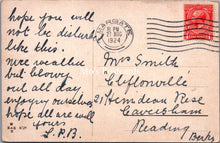 hope you will
not be disturbed
like this.
nice weather
but blowy
out all day
enjoying ourselves
hope all are well
yours
L.P.B.
MARGATE
PM
21 AUG
1924
Mrs Smith
Cliftonville
21 Hindean Rise
Caversham
Reading
Berks